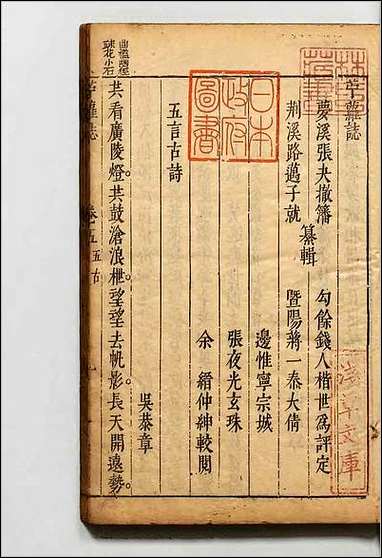 苧蘿誌
夢溪張夬撤籓
荆溪路邁子就
纂輯
勾餘錢人楷世爲評定
暨陽蔣一泰大倩
邊惟寧宗城
張夜光玄珠
余縉仲紳較閱
五言古詩
吳恭章
共看廣陵燈。共鼓滄浪枻。望望去帆影。長天開遠勢。
苧蘿誌
卷之五 五古
日本
政府
圖書
淺草文庫